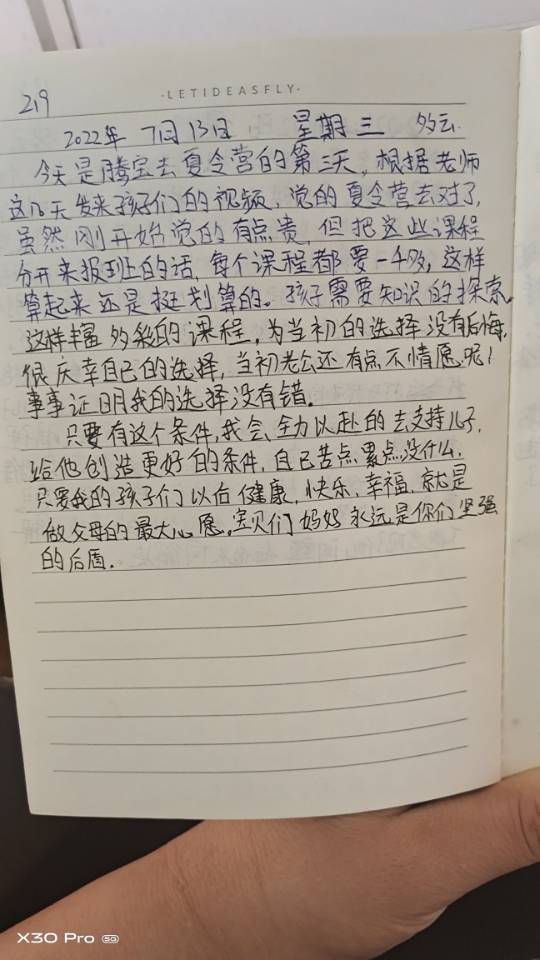 ·LETIDEASFLY·
219
2022年 7月13日 星期三 多云
今天是腾宝去夏令营的第三天。根据老师
这几天发来孩子们的视频，觉的夏令营去对了，
虽然刚开始觉的有点贵，但把这些课程
分开来报班的话，每个课程都要一千多，这样
算起来还是挺划算的。孩子需要知识的探索。
这样丰富多彩的课程，为当初的选择没有后悔，
很庆幸自己的选择，当初老公还有点不情愿呢！
事事证明我的选择没有错。
只要有这个条件，我会全力以赴的去支持儿子，
给他创造更好的条件，自己苦点累点没什么，
只要我的孩子们以后健康，快乐，幸福，就是
做父母的最大心愿。宝贝们妈妈永远是你们坚强
的后盾.
X30 Pro 5G